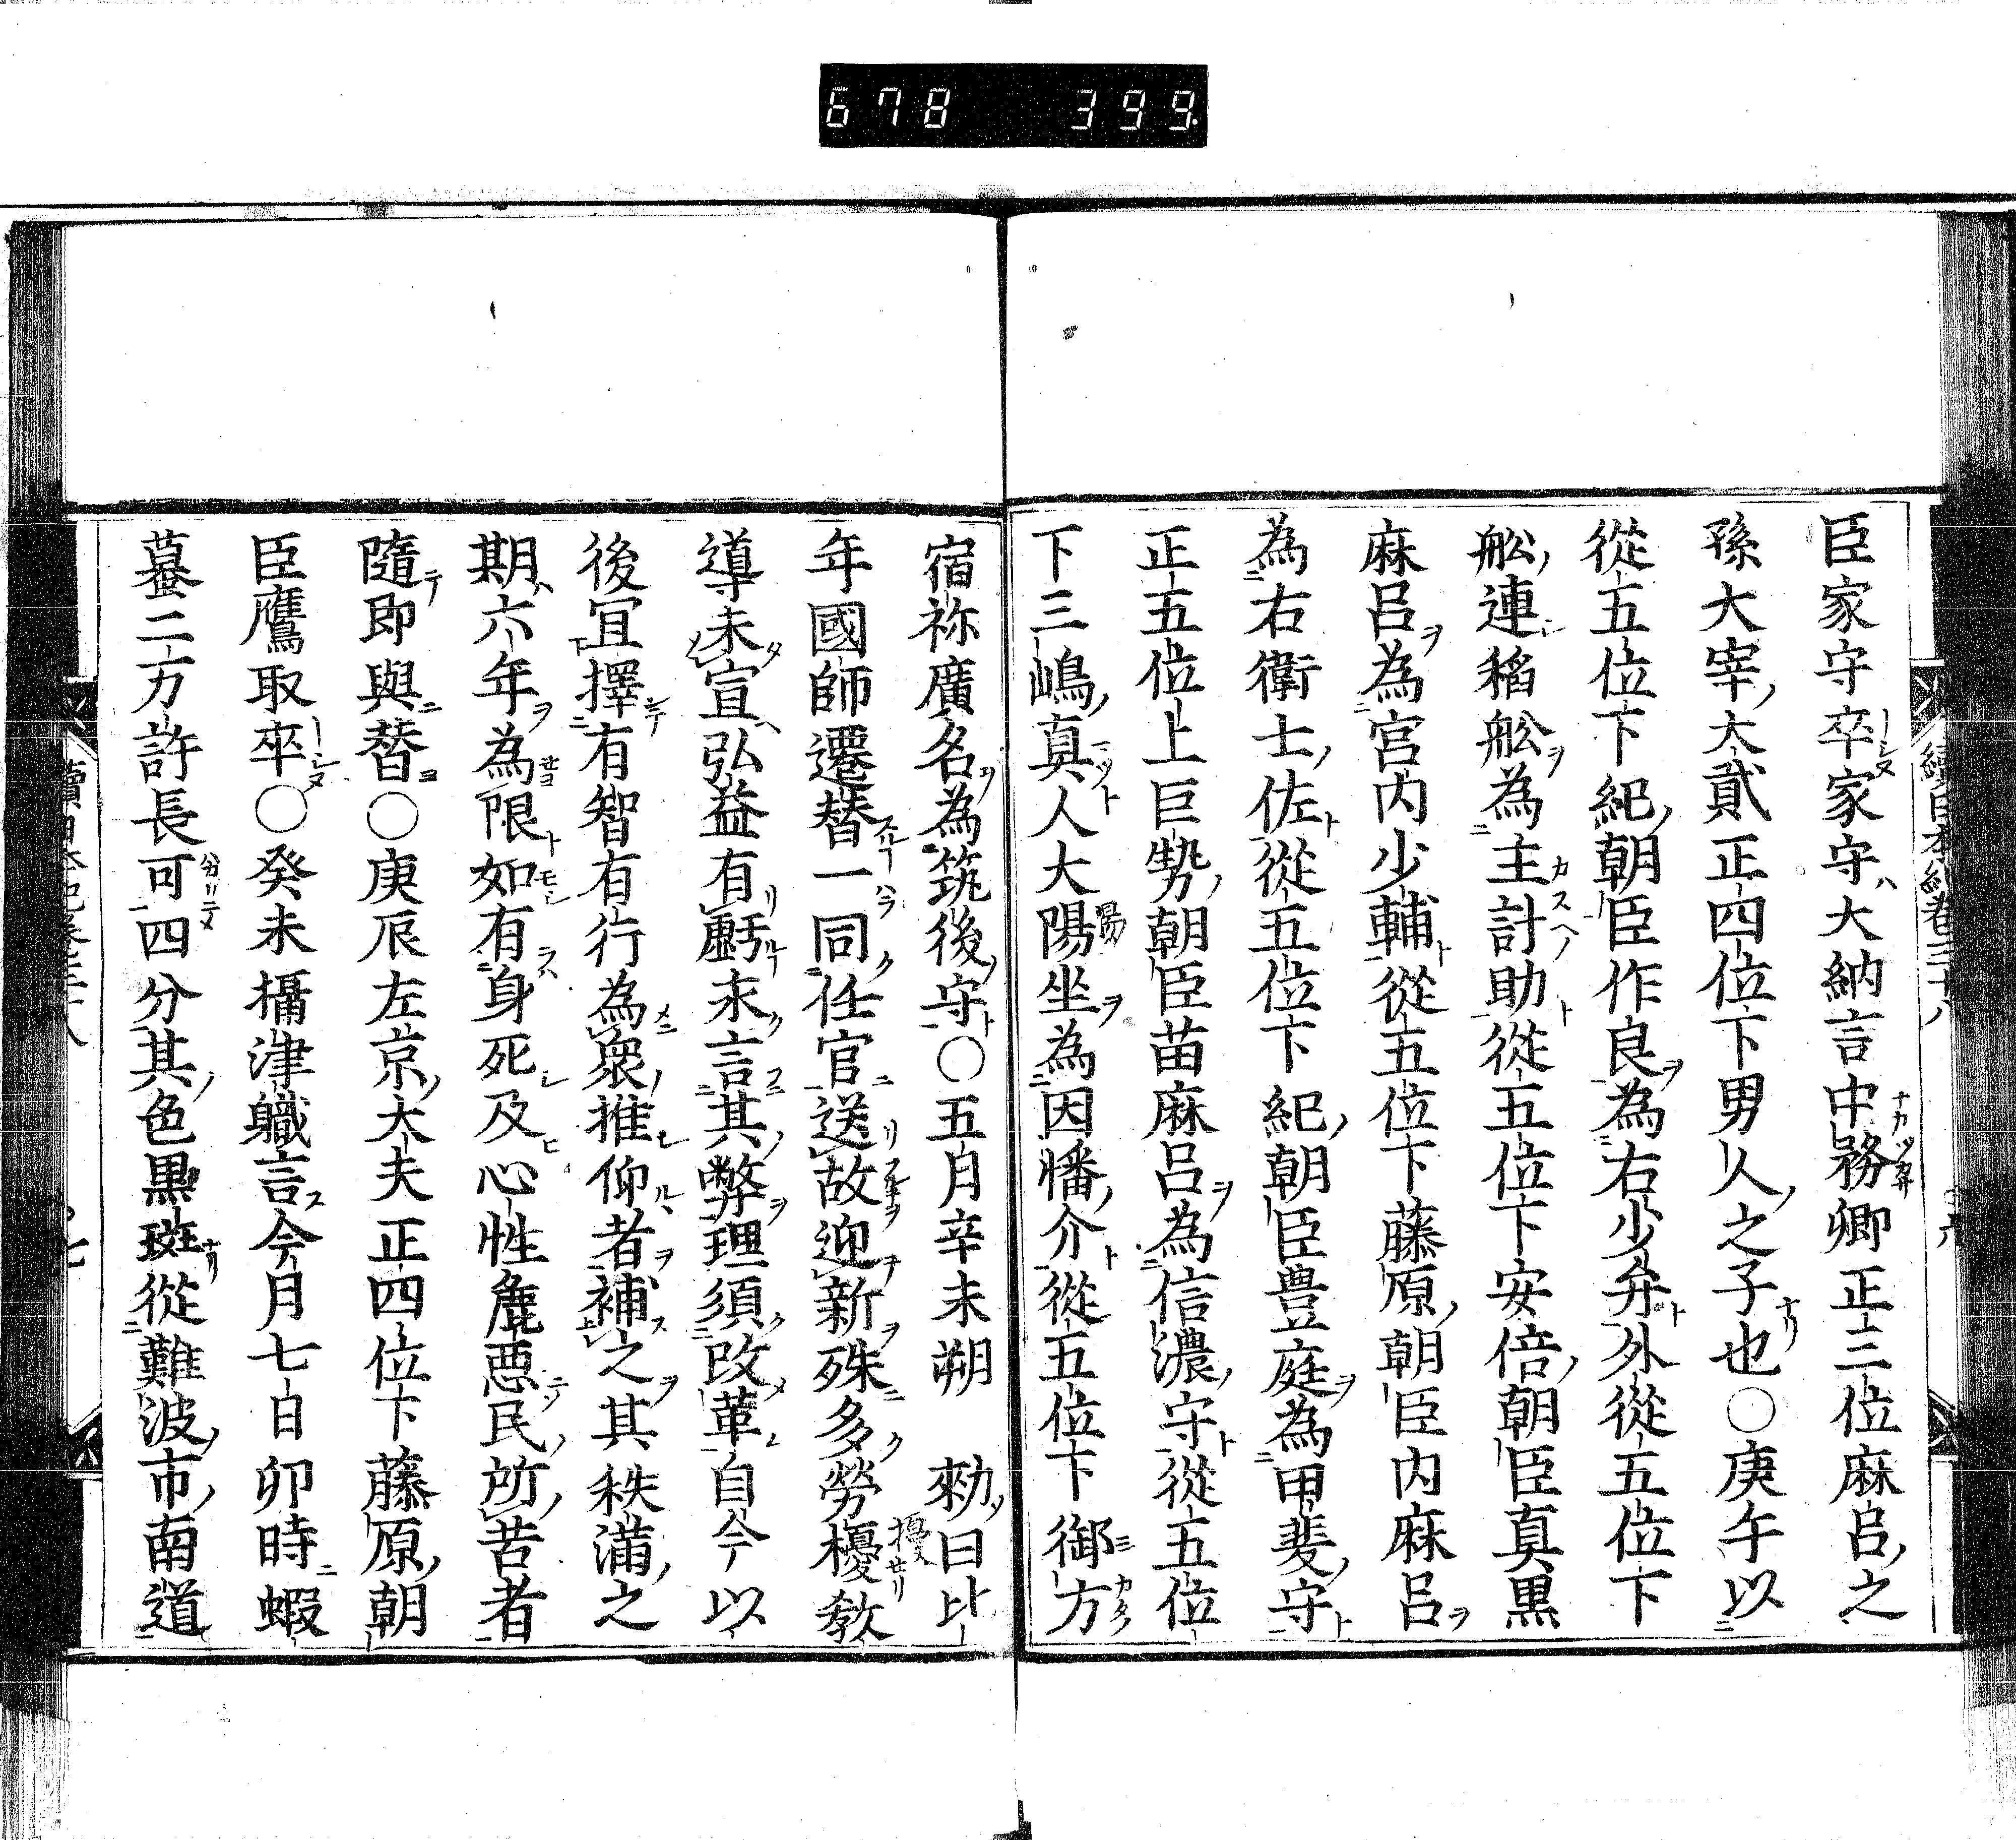 678 399
臣家守卒家守大納言中務卿正三位麻呂之
孫大宰大貳正四位下男人之子也〇庚午以
從五位下紀朝臣作良為右少弁外從五位下
舩連稻舩為主計助從五位下安倍朝臣真黒
麻呂為宮内少輔從五位下藤原朝臣内麻呂
為右衛士佐從五位下紀朝臣豊庭為甲斐守
正五位上巨勢朝臣苗麻呂為信濃守從五位
下三嶋真人大陽坐為因幡介從五位下御方
宿祢廣名為筑後守〇五月辛未朔 勑曰比
年國師遷替一同任官送故迎新殊多勞櫌教
導未宣弘益有虧永言其弊理須改革自今以
後冝擇有智有行為衆推仰者補之其秩滿之
期六年為限如有身死及心性麁悪民所苦者
隨即與替〇庚辰左京大夫正四位下藤原朝
臣鷹取卒〇癸未攝津職言今月七日卯時蝦
蟇二万許長可四分其色黒斑從難波市南道